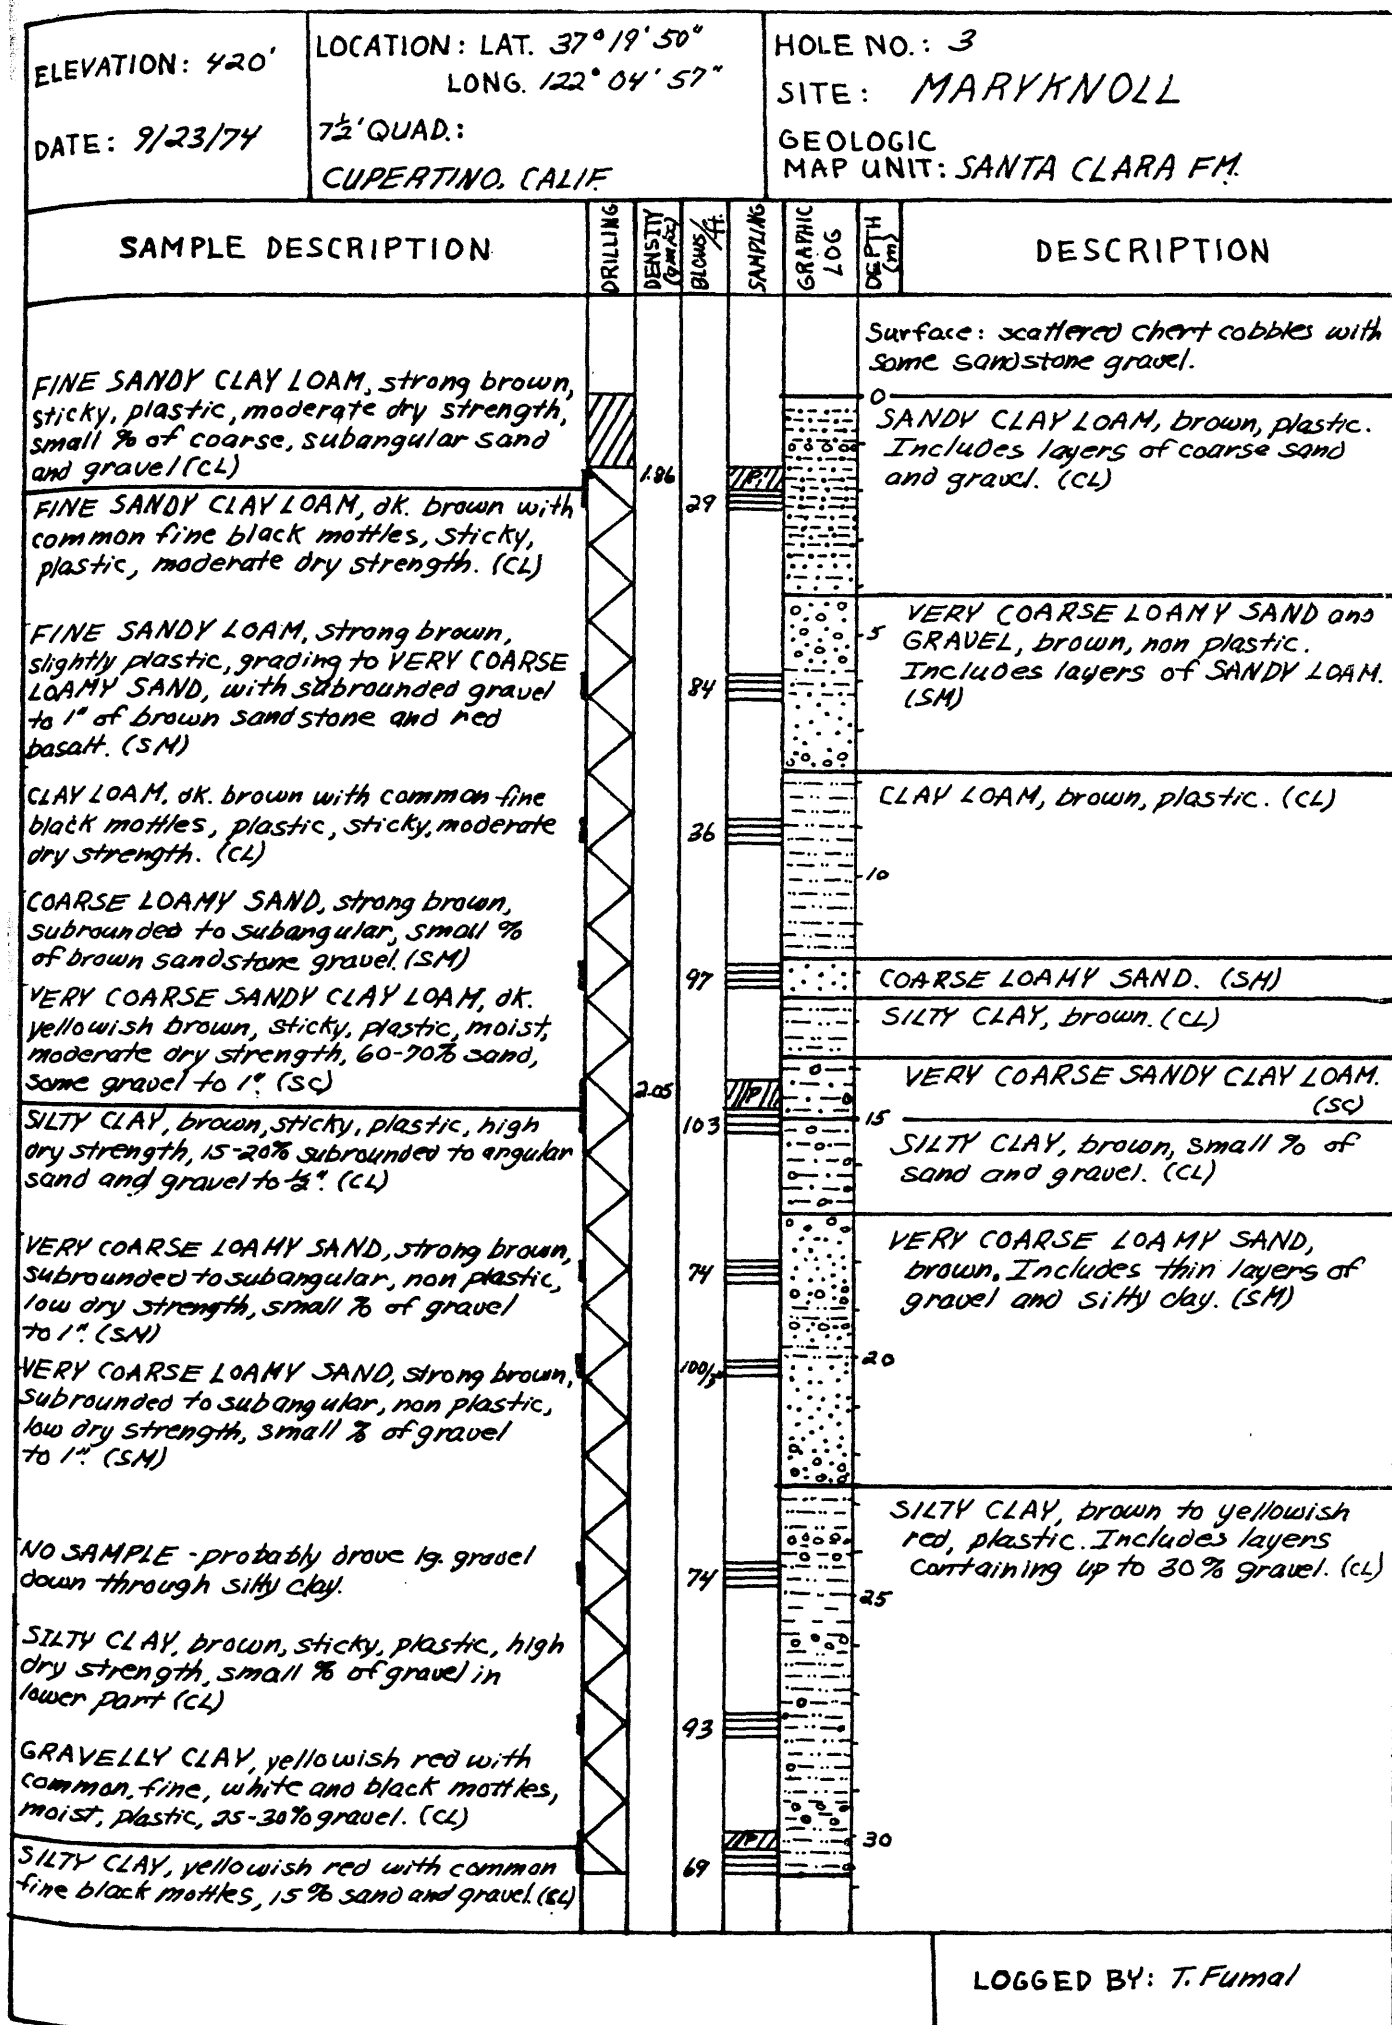 ELEVATION: 420'
DATE: 9/23/74
LOCATION: LAT. 37° 19' 50"
LONG. 122° 04' 57"
7½' QUAD.:
CUPERTINO, CALIF.
HOLE NO.: 3
SITE: MARYKNOLL
GEOLOGIC
MAP UNIT: SANTA CLARA FM.
SAMPLE DESCRIPTION
DRILLING
DENSITY
(gm/cc)
BLOWS/ft.
SAMPLING
GRAPHIC
LOG
DEPTH
(m)
DESCRIPTION
FINE SANDY CLAY LOAM, strong brown,
sticky, plastic, moderate dry strength,
small % of coarse, subangular sand
and gravel (CL)
FINE SANDY CLAY LOAM, dk. brown with
common fine black mottles, sticky,
plastic, moderate dry strength. (CL)
FINE SANDY LOAM, strong brown,
slightly plastic, grading to VERY COARSE
LOAMY SAND, with subrounded gravel
to 1" of brown sandstone and red
basalt. (SM)
CLAY LOAM, dk. brown with common fine
black mottles, plastic, sticky, moderate
dry strength. (CL)
COARSE LOAMY SAND, strong brown,
subrounded to subangular, small %
of brown sandstone gravel. (SM)
VERY COARSE SANDY CLAY LOAM, dk.
yellowish brown, sticky, plastic, moist,
moderate dry strength, 60-70% sand,
some gravel to 1". (SC)
SILTY CLAY, brown, sticky, plastic, high
dry strength, 15-20% subrounded to angular
sand and gravel to ½". (CL)
VERY COARSE LOAMY SAND, strong brown,
subrounded to subangular, non plastic,
low dry strength, small % of gravel
to 1". (SM)
VERY COARSE LOAMY SAND, strong brown,
subrounded to subangular, non plastic,
low dry strength, small % of gravel
to 1". (SM)
NO SAMPLE - probably drove lg. gravel
down through silty clay.
SILTY CLAY, brown, sticky, plastic, high
dry strength, small % of gravel in
lower part (CL)
GRAVELLY CLAY, yellowish red with
common, fine, white and black mottles,
moist, plastic, 25-30% gravel. (CL)
SILTY CLAY, yellowish red with common
fine black mottles, 15% sand and gravel. (CL)
1.86
2.05
29
84
36
97
103
74
100/5"
74
93
69
P
P
P
0
5
10
15
20
25
30
Surface: scattered chert cobbles with
some sandstone gravel.
SANDY CLAY LOAM, brown, plastic.
Includes layers of coarse sand
and gravel. (CL)
VERY COARSE LOAMY SAND and
GRAVEL, brown, non plastic.
Includes layers of SANDY LOAM.
(SM)
CLAY LOAM, brown, plastic. (CL)
COARSE LOAMY SAND. (SM)
SILTY CLAY, brown. (CL)
VERY COARSE SANDY CLAY LOAM.
(SC)
SILTY CLAY, brown, small % of
sand and gravel. (CL)
VERY COARSE LOAMY SAND,
brown. Includes thin layers of
gravel and silty clay. (SM)
SILTY CLAY, brown to yellowish
red, plastic. Includes layers
containing up to 30% gravel. (CL)
LOGGED BY: T. Fumal